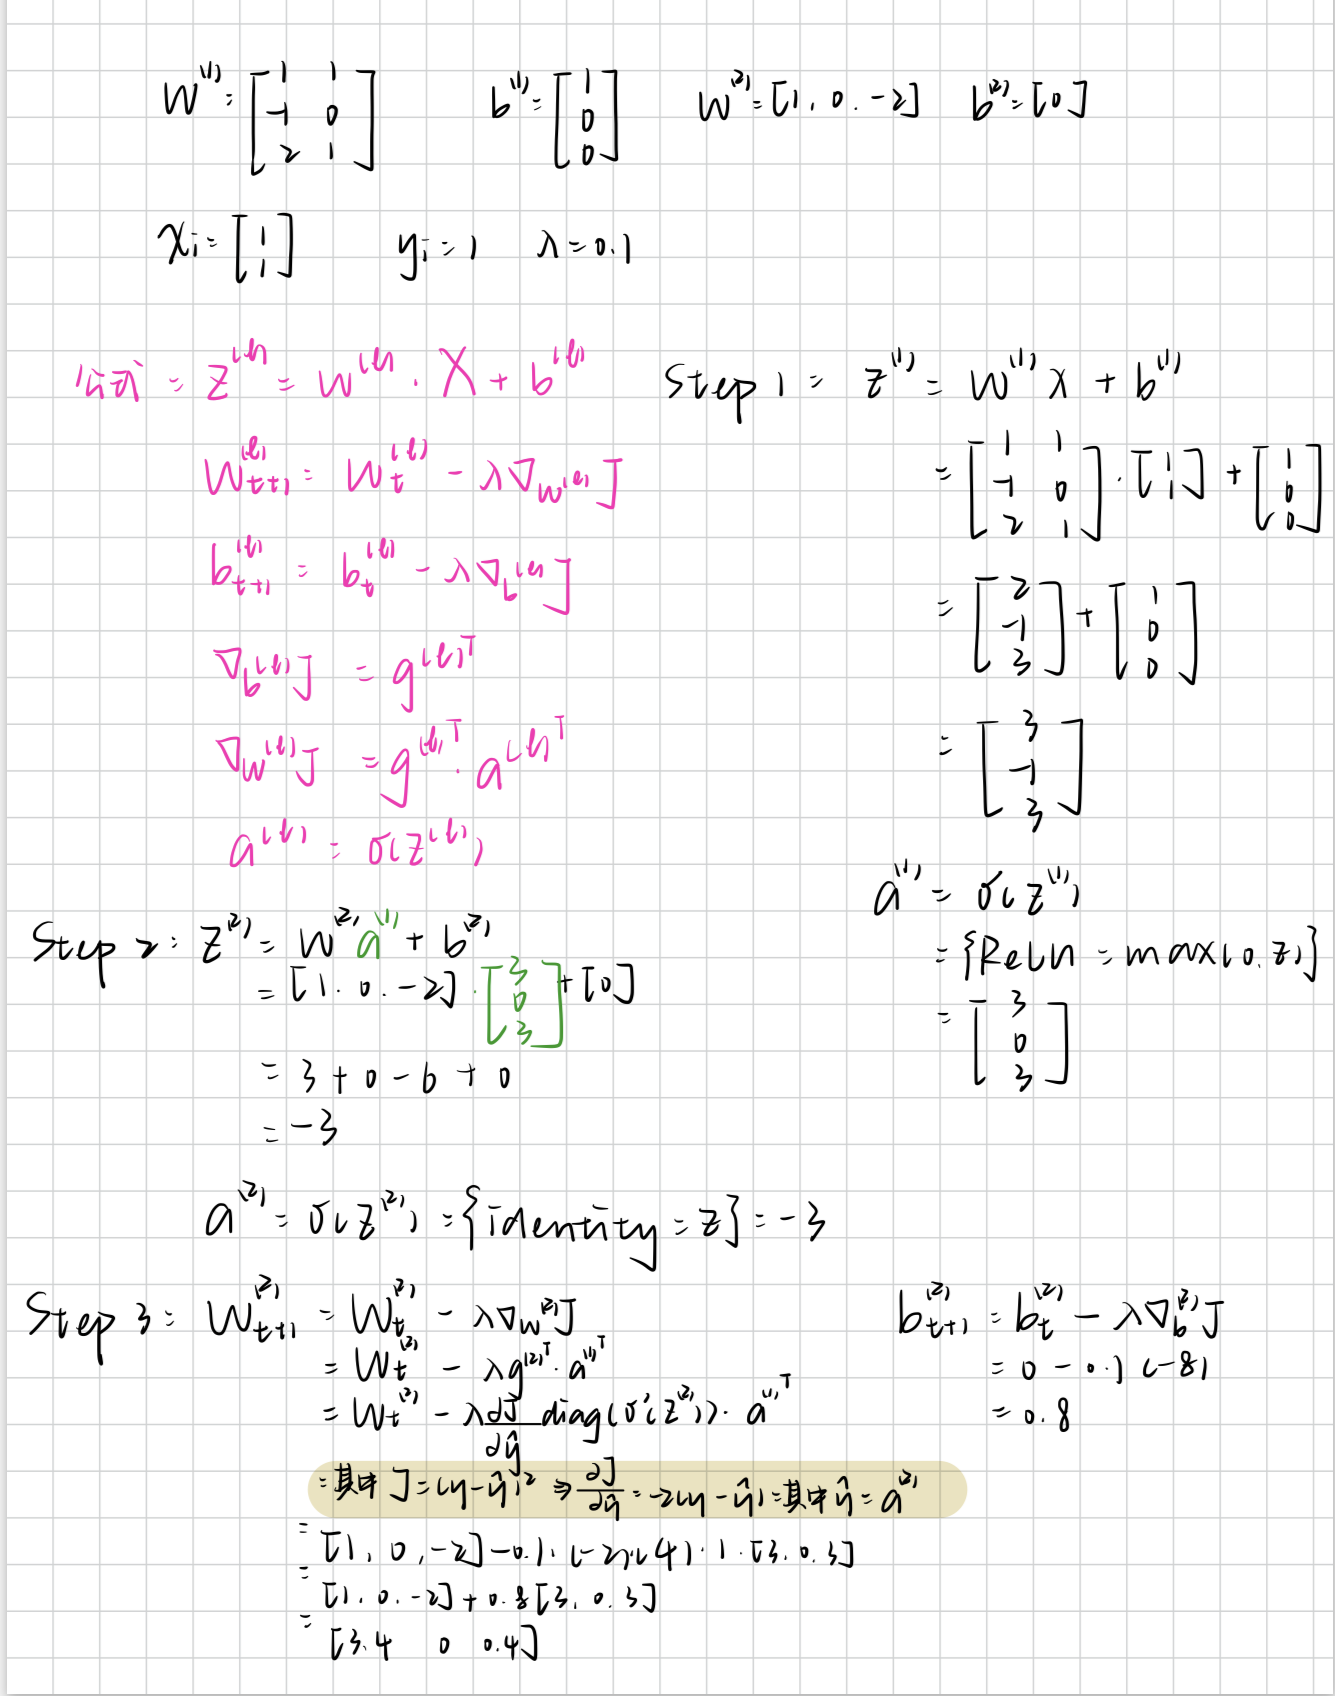 W⁽¹⁾: [1 1; -1 0; 2 1] b⁽¹⁾= [1; 0; 0] W⁽²⁾=[1, 0. -2] b⁽²⁾=[0]
xᵢ= [1; 1] yᵢ=1 λ=0.1
公式: z⁽ˡ⁾ = W⁽ˡ⁾ · X + b⁽ˡ⁾
W⁽ˡ⁾ₜ₊₁ = W⁽ˡ⁾ₜ - λ∇_W⁽ˡ⁾ J
b⁽ˡ⁾ₜ₊₁ = b⁽ˡ⁾ₜ - λ∇_b⁽ˡ⁾ J
∇_b⁽ˡ⁾ J = g⁽ˡ⁾ᵀ
∇_W⁽ˡ⁾ J = g⁽ˡ⁾ᵀ · a⁽ˡ⁾ᵀ
a⁽ˡ⁾ = σ(z⁽ˡ⁾)
Step 1: z⁽¹⁾ = W⁽¹⁾ X + b⁽¹⁾
= [1 1; -1 0; 2 1] · [1; 1] + [1; 0; 0]
= [2; -1; 3] + [1; 0; 0]
= [3; -1; 3]
a⁽¹⁾ = σ(z⁽¹⁾)
= {ReLu = max(0, z)}
= [3; 0; 3]
Step 2: z⁽²⁾ = W⁽²⁾ a⁽¹⁾ + b⁽²⁾
= [1. 0. -2] · [3; 0; 3] + [0]
= 3 + 0 - 6 + 0
= -3
a⁽²⁾ = σ(z⁽²⁾) = {identity = z} = -3
Step 3: W⁽²⁾ₜ₊₁ = W⁽²⁾ₜ - λ∇_W⁽²⁾ J
= W⁽²⁾ₜ - λg⁽²⁾ᵀ · a⁽¹⁾ᵀ
= W⁽²⁾ₜ - λ ∂J/∂ŷ diag(σ'(z⁽²⁾)) · a⁽¹⁾ᵀ
= 其中 J = (y-ŷ)² ⇒ ∂J/∂ŷ = -2(y-ŷ) = 其中 ŷ = a⁽²⁾
= [1, 0, -2] - 0.1 · (-2)·(4) · 1 · [3, 0. 3]
= [1. 0. -2] + 0.8 [3, 0. 3]
= [3.4 0 0.4]
b⁽²⁾ₜ₊₁ = b⁽²⁾ₜ - λ∇_b⁽²⁾ J
= 0 - 0.1 (-8)
= 0.8